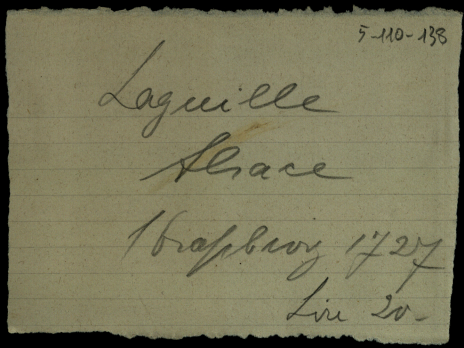 5-110-138
Laguille
Alsace
Straßburg 1727
Lire 20-